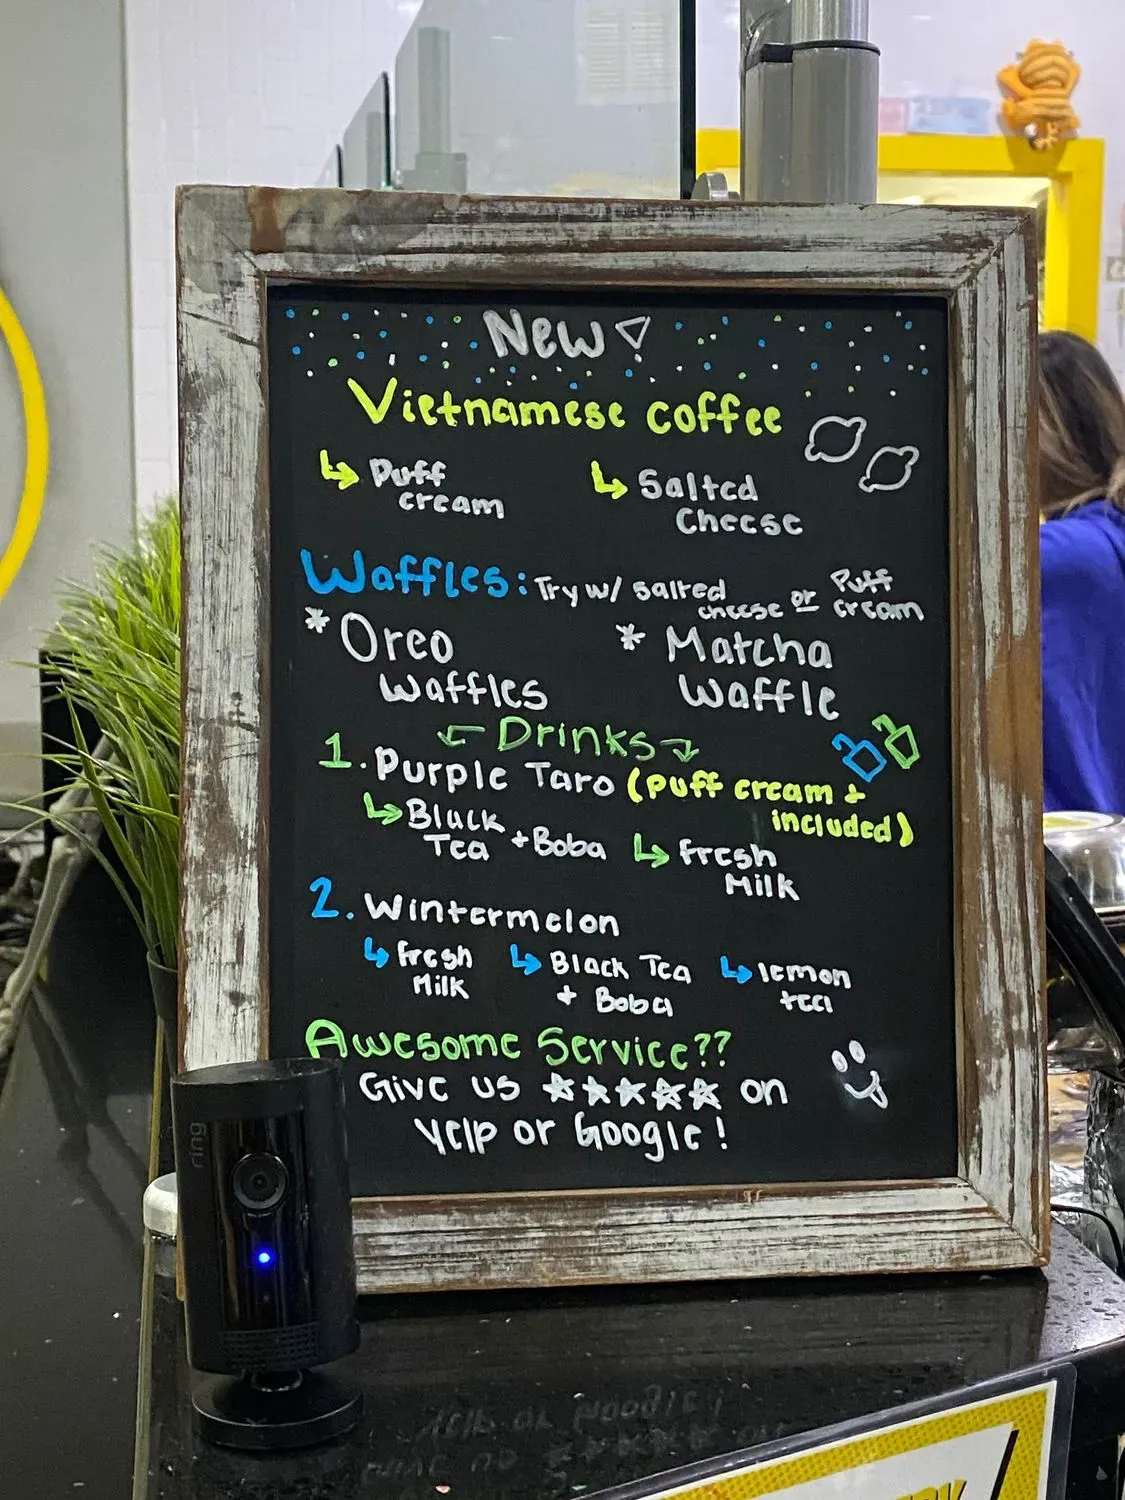 New!
Vietnamese coffee
↳ Puff cream
↳ Salted Cheese
Waffles: Try w/ salted cheese or Puff cream
* Oreo Waffles
* Matcha Waffle
Drinks
1. Purple Taro (puff cream + included)
↳ Black Tea + Boba
↳ fresh Milk
2. Wintermelon
↳ fresh Milk
↳ Black Tea + Boba
↳ lemon tea
Awesome Service??
Give us ★★★★★ on
Yelp or Google!
ring